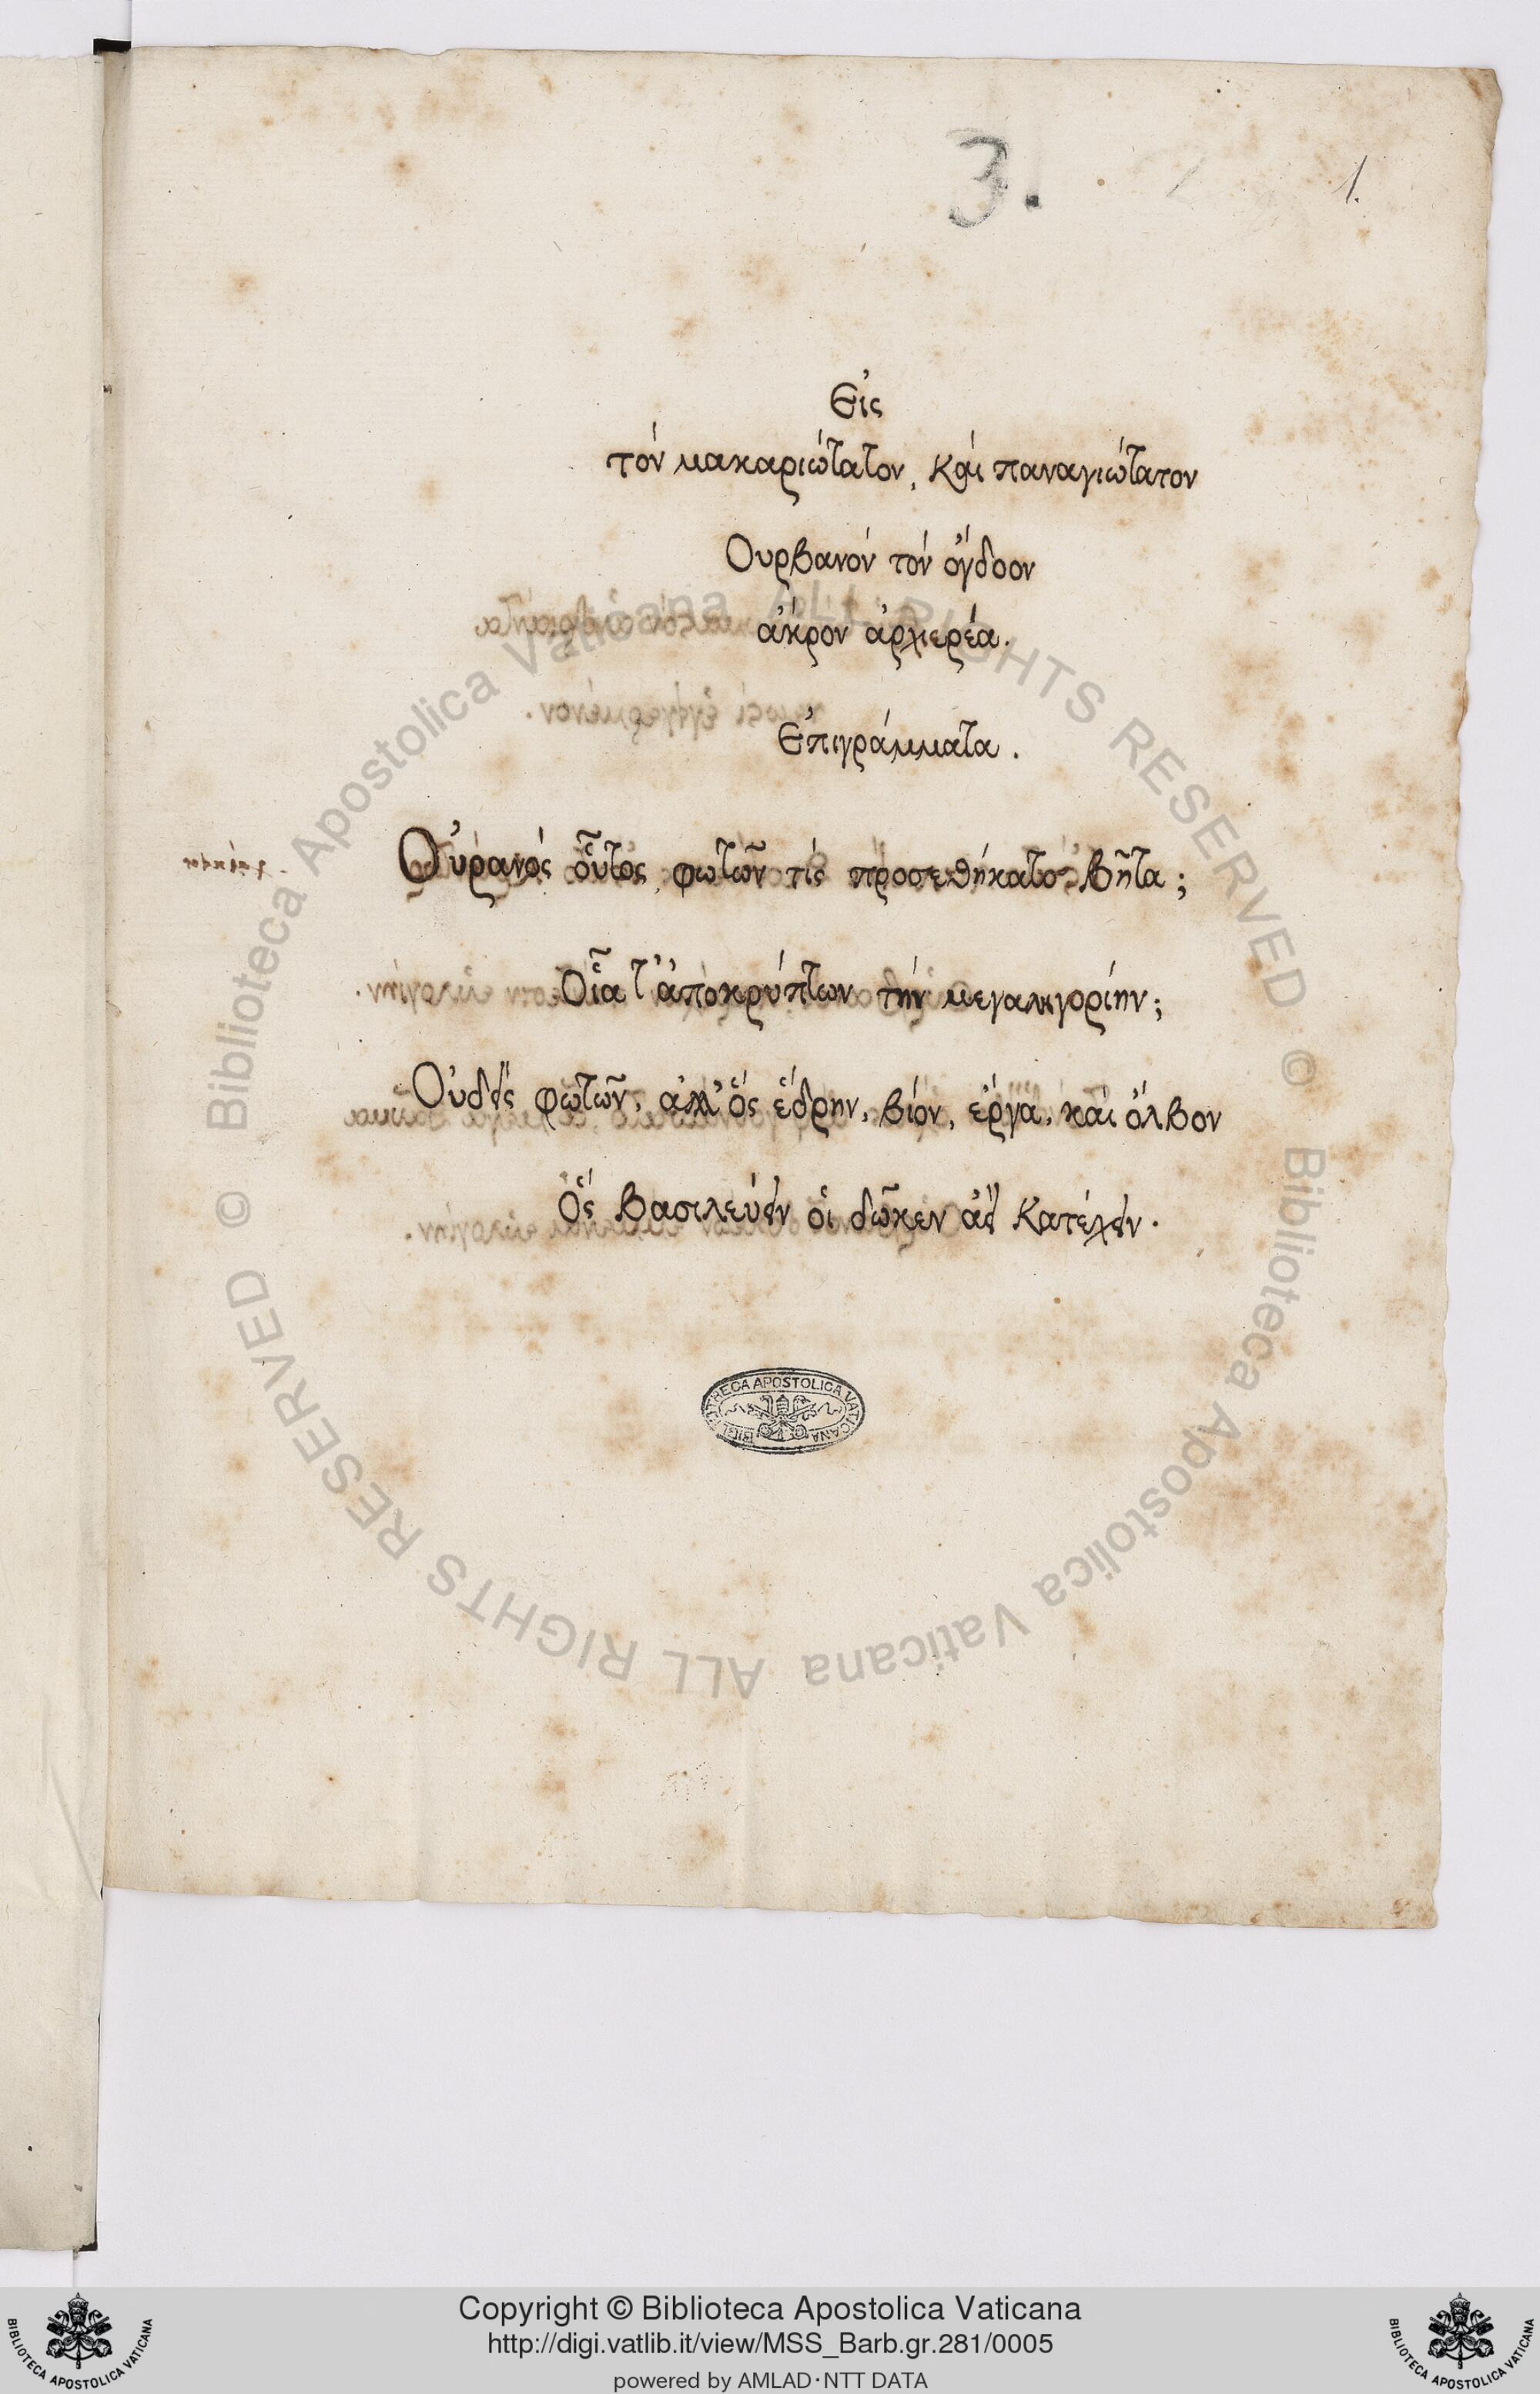 3.
1.
Εἰς
τὸν μακαριώτατον, καὶ παναγιώτατον
Ουρβανὸν τὸν ὄγδοον
ἄκρον ἀρχιερέα.
Ἐπιγράμματα.
Οὐρανὸς οὗτος, φωτῶν τίς προσεθήκατο βῆτα;
Οἷα τ' ἀποκρύπτων τὴν μεγαληγορίην;
Οὐδεὶς φωτῶν, ἀλλ' ὃς ἕδρην, βίον, ἔργα, καὶ ὄλβον
Ὃς βασιλεύειν οἱ δῶκεν ἀεὶ κατέχειν.
BIBLIOTHECA APOSTOLICA VATICANA
© Biblioteca Apostolica Vaticana ALL RIGHTS RESERVED
© Biblioteca Apostolica Vaticana ALL RIGHTS RESERVED
Copyright © Biblioteca Apostolica Vaticana
http://digi.vatlib.it/view/MSS_Barb.gr.281/0005
powered by AMLAD·NTT DATA
BIBLIOTECA APOSTOLICA VATICANA
BIBLIOTECA APOSTOLICA VATICANA